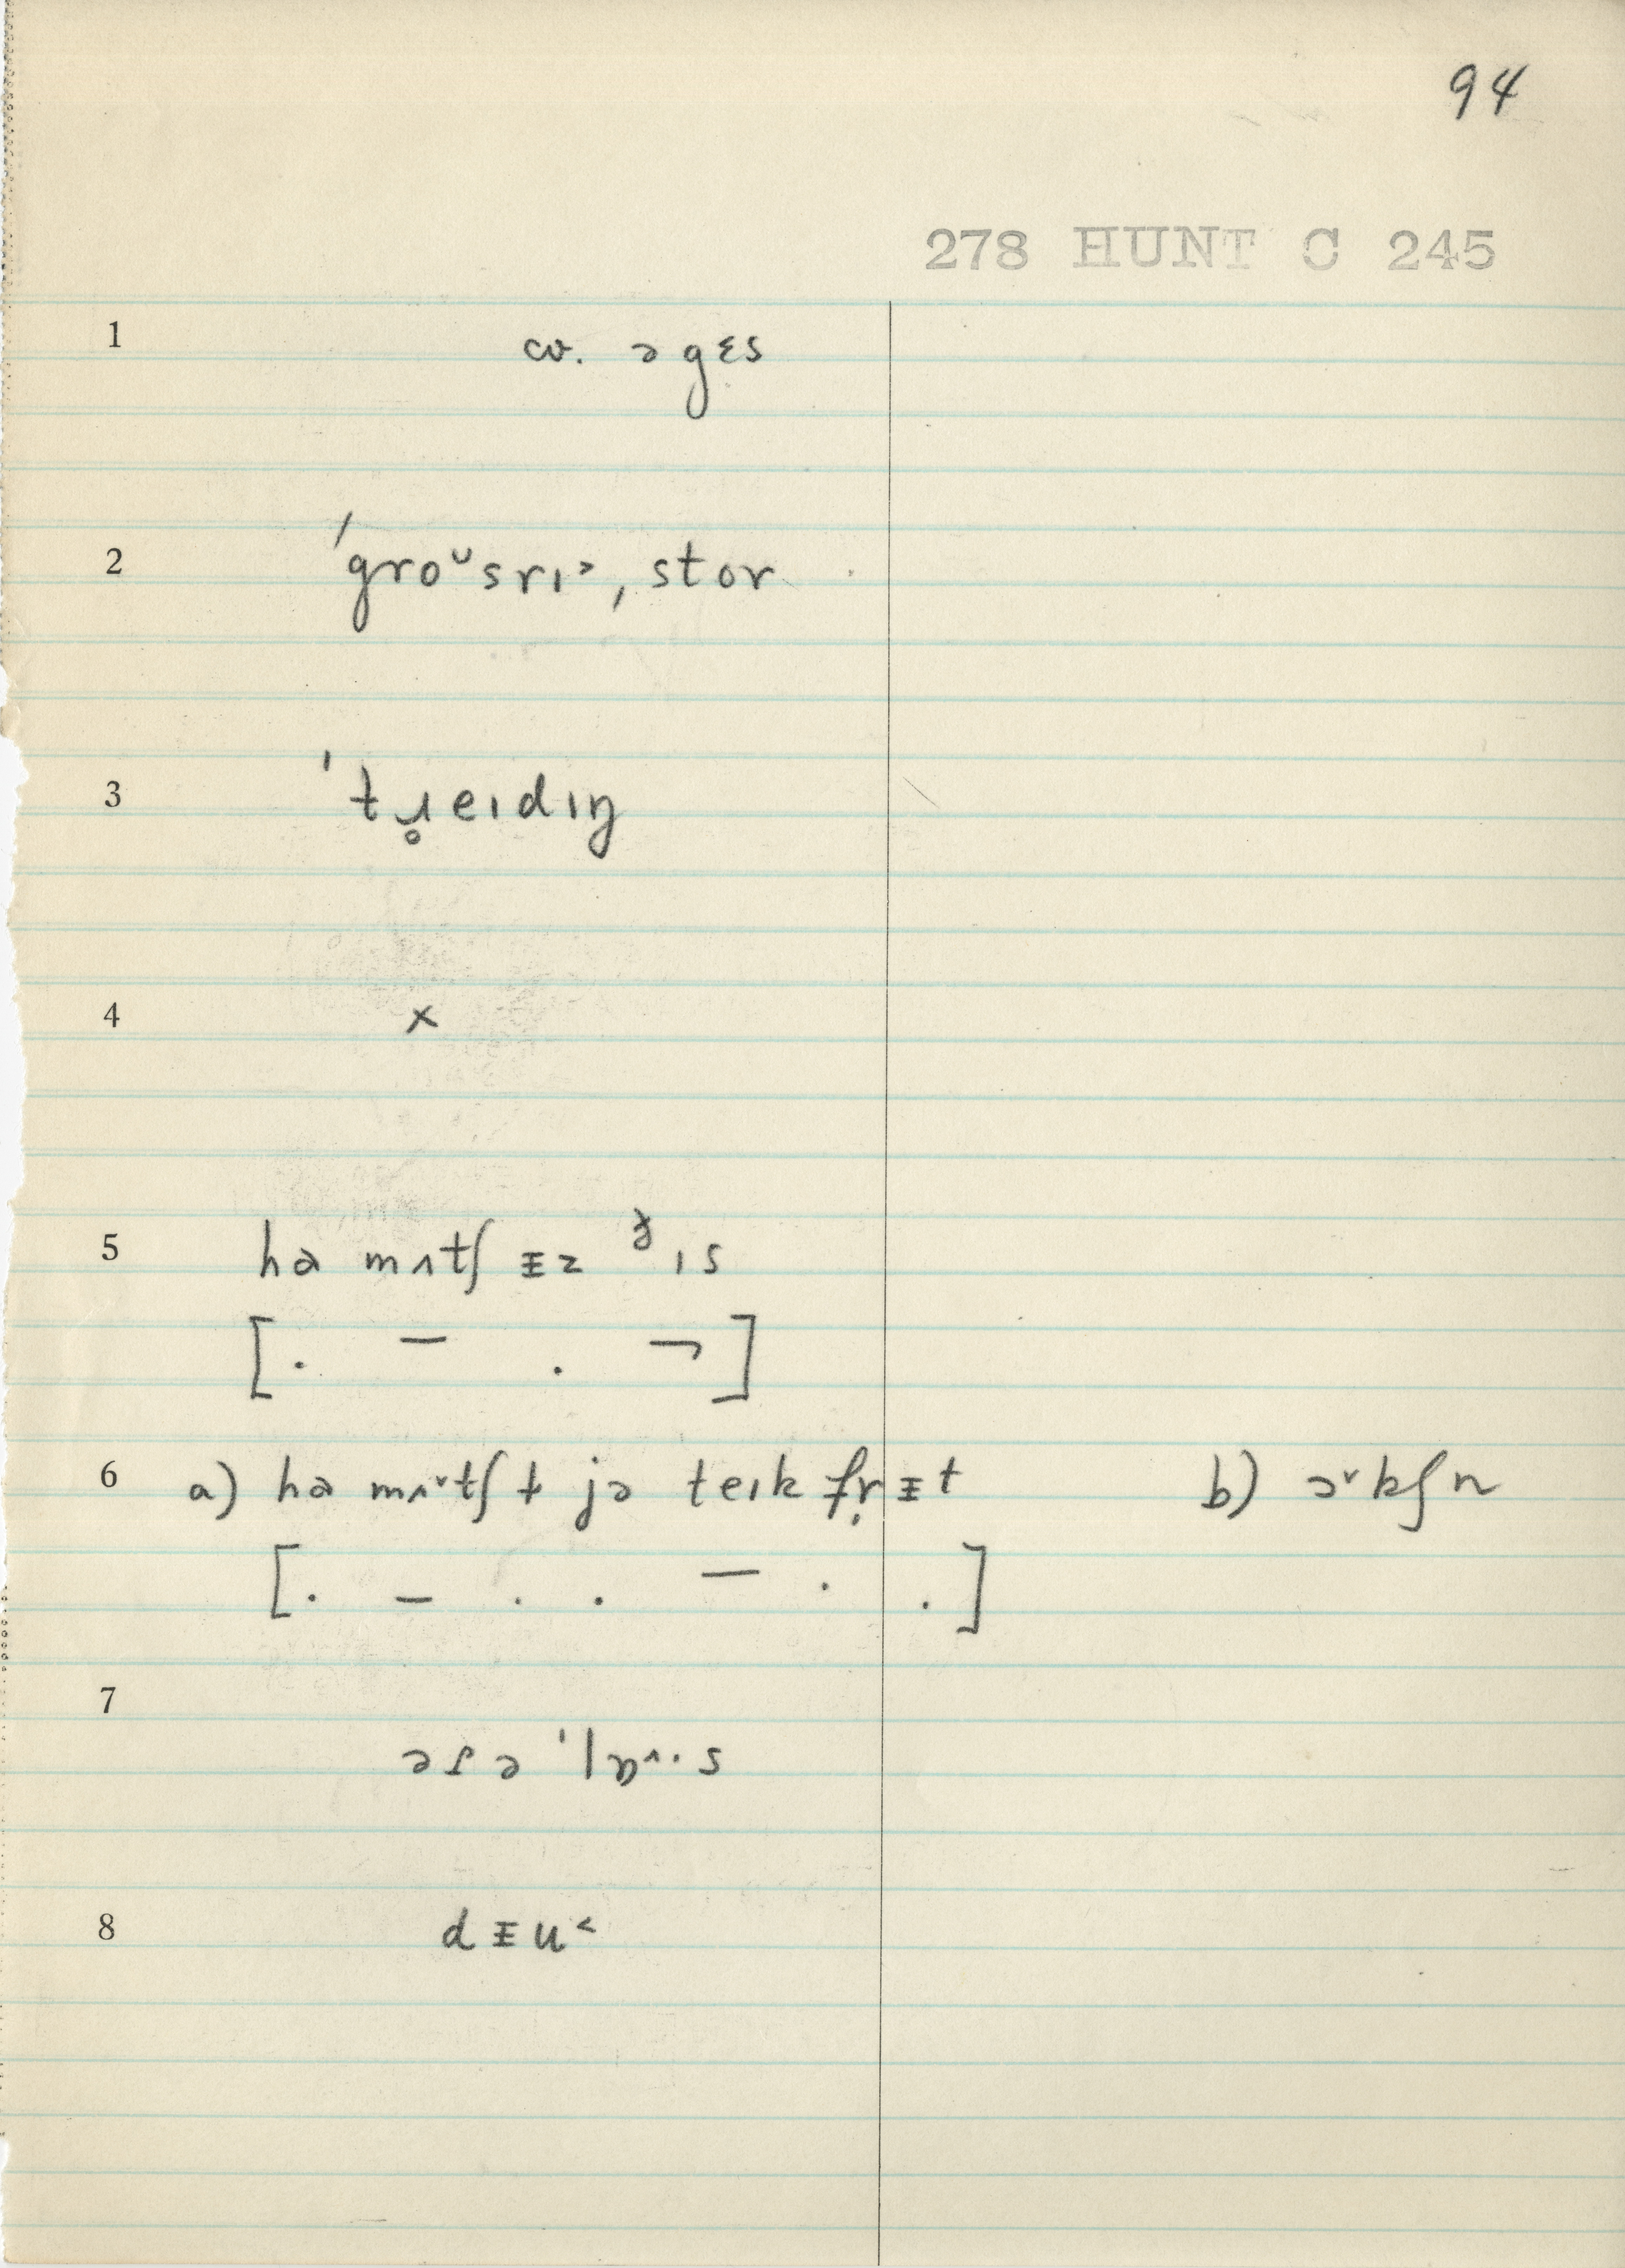 94
278 HUNT C 245
1 cv. ə gɛs
2 ˈgroᵕsrɪ˃, stor
3 ˈtɹ̥eɪdɪŋ
4 x
5 hə mʌtʃ ɪz ðɪs
[. – . ¬]
6 a) hə mʌ˅tʃ t jə teɪk fr̩ ɪt b) ɔ˅kʃn
[. – . . – . .]
7
8 dɪu˂